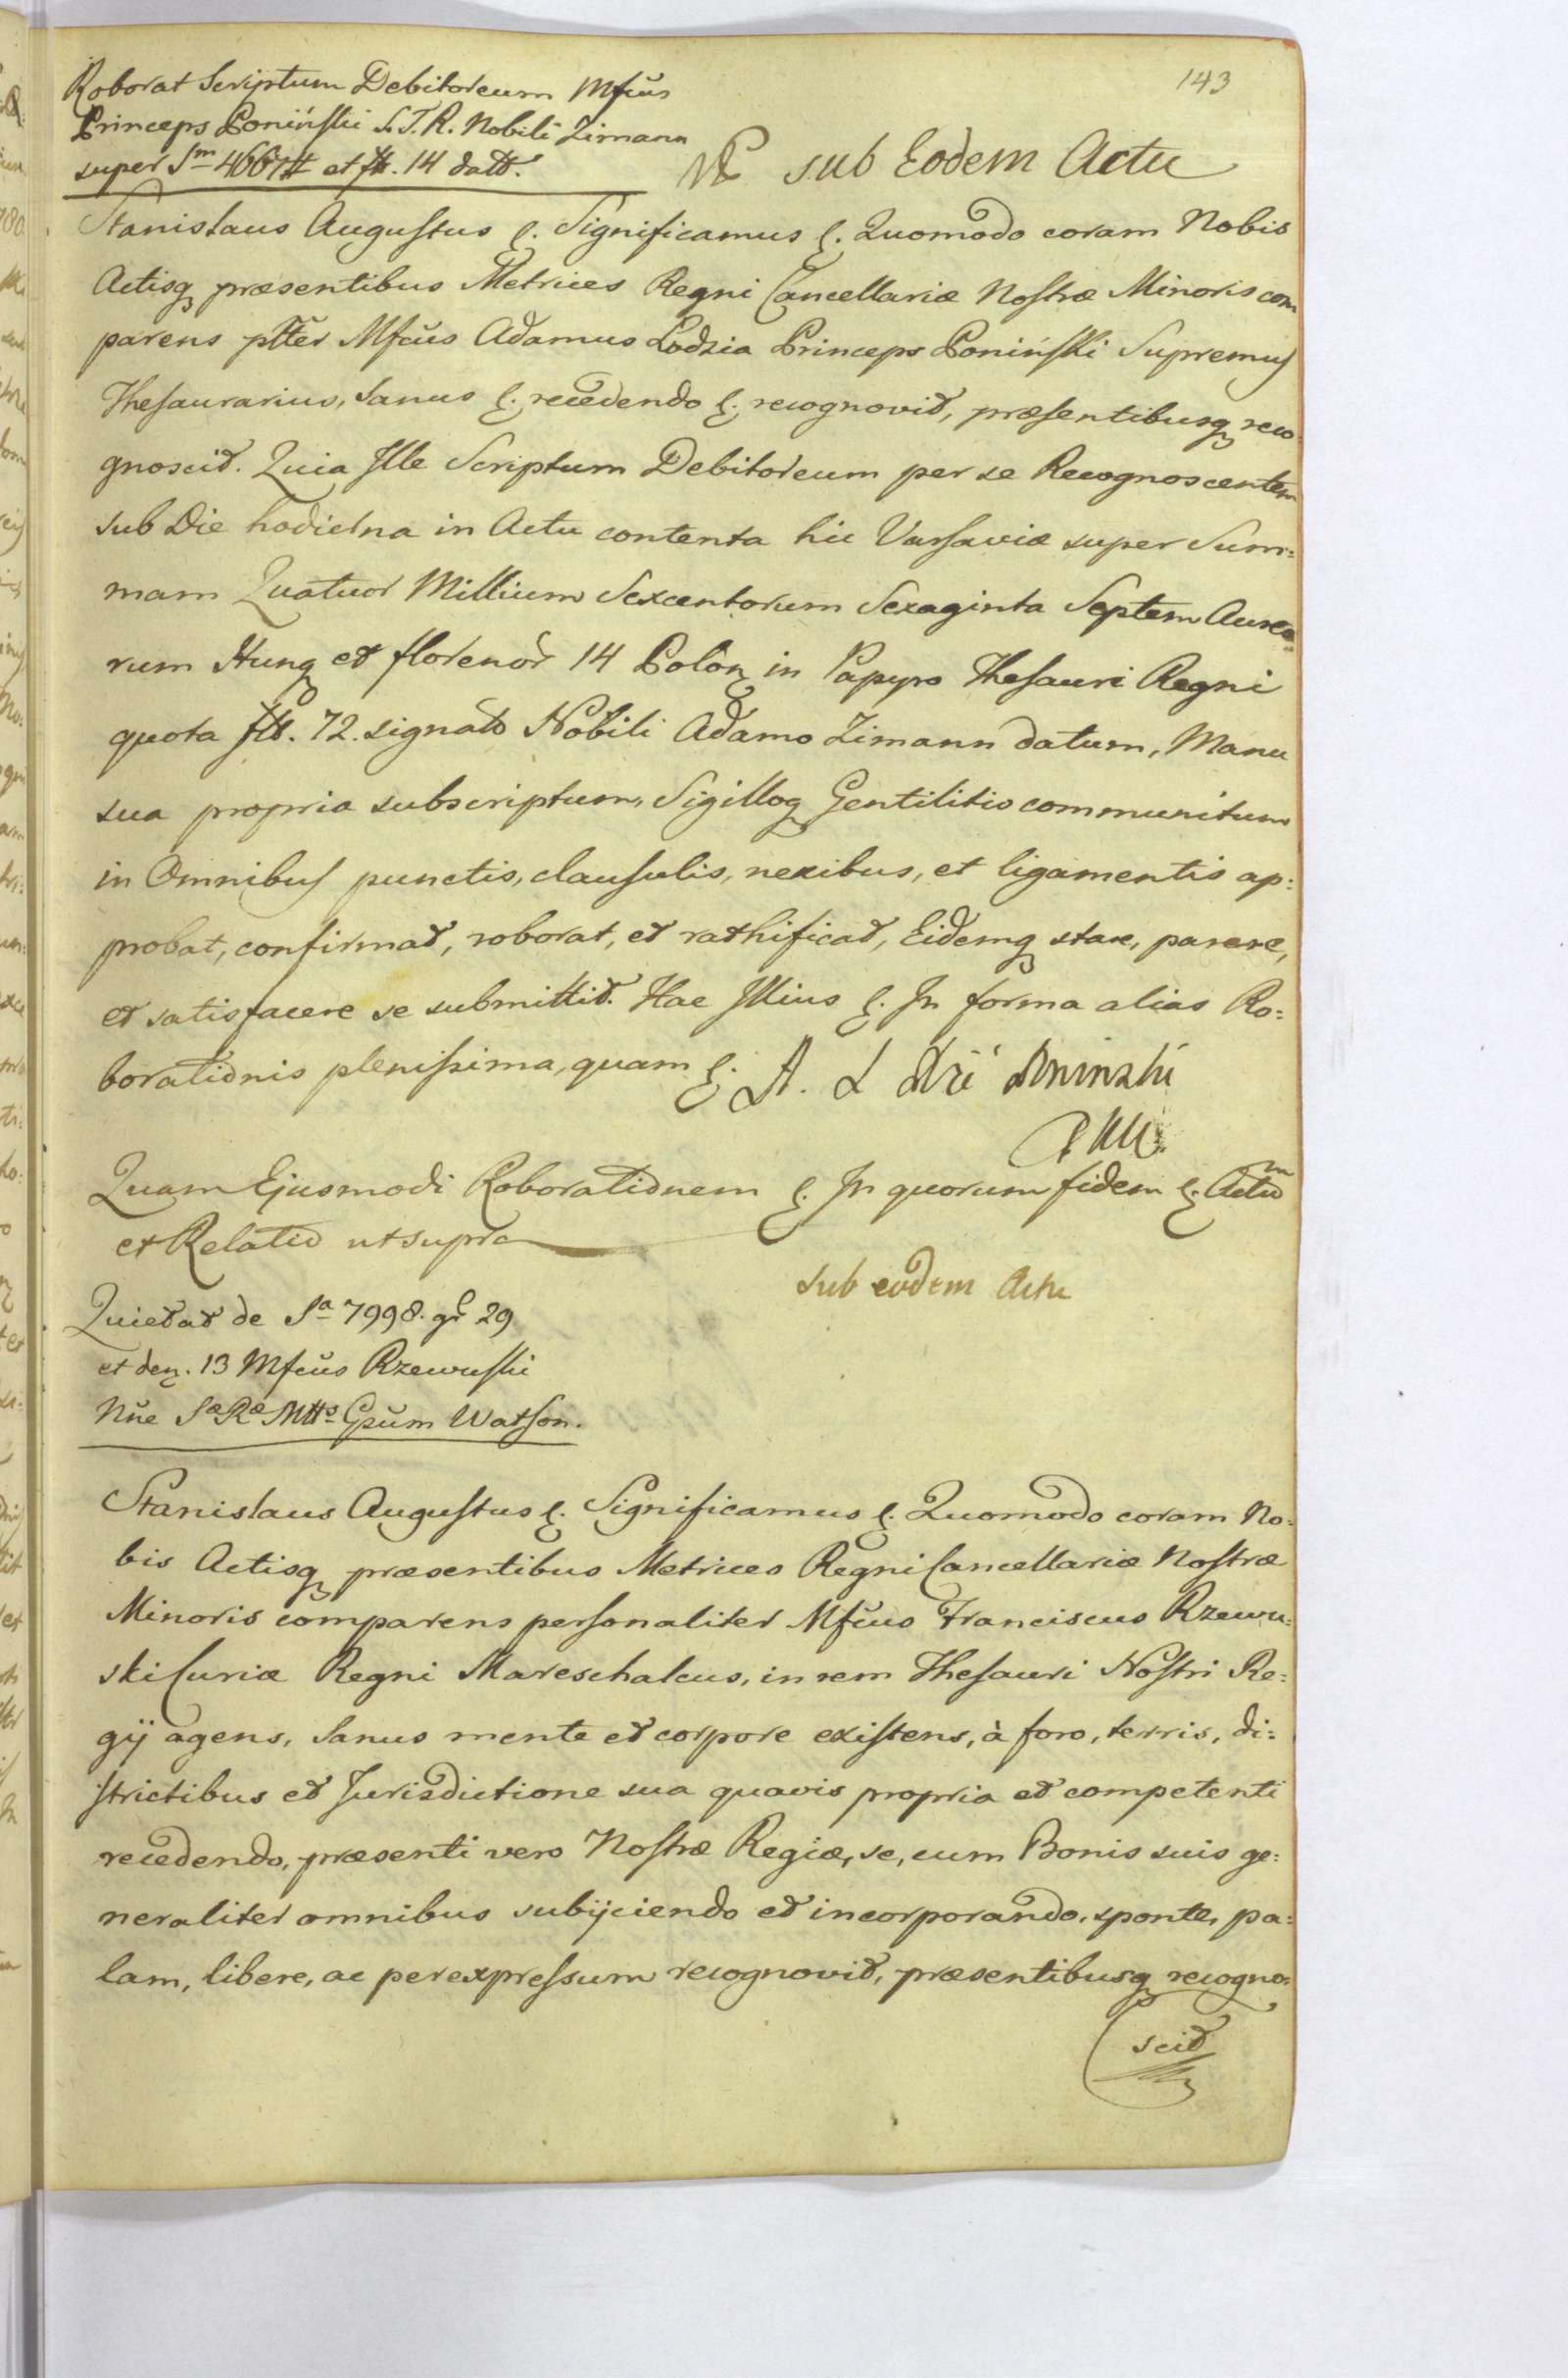 143
Roborat Scriptum Debitoreum Mfcus
Princeps Poniński S. T. R. Nobili Zimann
super Sm 4667 # et fl. 14 datt.
sub Eodem Actu
Stanislaus Augustus &. Significamus &. Quomodo coram Nobis
Actisq præsentibus Metrices Regni Cancellariæ Nostræ Minoris com
parens pltter Mfcus Adamus Lodzia Princeps Poniński Supremus
Thesaurarius, Sanus &. recedendo &. recognovit, præsentibusq reco
gnoscit. Quia Ille Scriptum Debitoreum per se Recognoscentem
sub Die hodierna in Actu contenta hic Varsaviæ super Sum:
mam Quatuor Millium Sexcentorum Sexaginta Septem Aureo
rum Hung et florenor 14 Polon in Papyro Thesauri Regni
quota fl. 72. signato Nobili Adamo Zimann datum, Manu
sua propria subscriptum, Sigilloq Gentilitio communitum
in Omnibus punctis, clausulis, nexibus, et ligamentis ap:
probat, confirmat, roborat, et rathificat, Eidemq stare, parere,
et satisfacere se submittit. Hac Illius &. In forma alias Ro:
borationis plenissima, quam &. A. L
Quam Ejusmodi Roborationem &. In quorum fidem &. Actum
et Relatio ut supra
sub eodem Actu
Quietat de Sa 7998. gr 29
et den. 13 Mfcus Rzewuski
Nne Sæ Ræ Mttis Gsum Watson.
Stanislaus Augustus &. Significamus &. Quomodo coram No:
bis Actisq præsentibus Metrices Regni Cancellariæ Nostræ
Minoris comparens personaliter Mfcus Franciscus Rzewu:
ski Curiæ Regni Mareschalcus, in rem Thesauri Nostri Re:
gij agens, Sanus mente et corpore existens, à foro, terris, di:
strictibus et Jurisdictione sua quavis propria et competenti
recedendo, præsenti vero Nostræ Regiæ, se, cum Bonis suis ge:
neraliter omnibus subijciendo et incorporando, sponte, pa:
lam, libere, ac per expressum recognovit, præsentibusq recogno:
scit